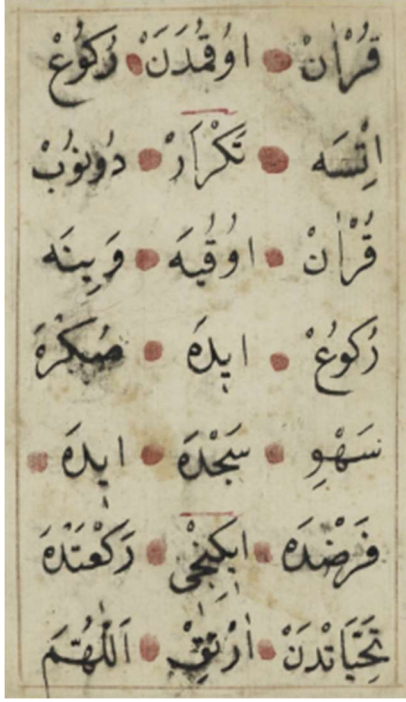 قُرْاٰنْ اوُقُمَدَنْ رُكُوعْ
اِتْسَه تَكْرَارْ دُونوُبْ
قُرْاٰنْ اوُقُيَه وَيِنَه
رُكُوعْ ايدَه صُكْرَه
سَهْوِ سَجْدَه ايدَه
فَرْضْدَه ايكِنْجٖى رَكْعَتْدَه
تَحِيَّاتْدَنْ اَرْتِقْ اَللّٰهُمَّ